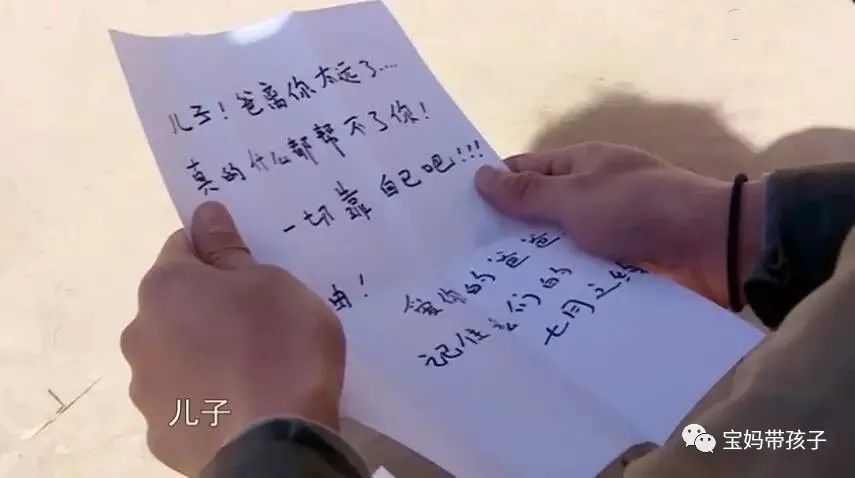 儿子！爸离你太远了....
真的什么都帮不了你！
一切靠自己吧!!!
爱你的爸爸
记住我们的
七月之约
儿子
宝妈带孩子